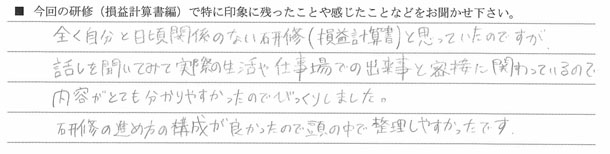 ■ 今回の研修（損益計算書編）で特に印象に残ったことや感じたことなどをお聞かせ下さい。
全く自分と日頃関係のない研修(損益計算書)と思っていたのですが、
話しを聞いてみて実際の生活や仕事場での出来事と密接に関わっているので
内容がとても分かりやすかったのでびっくりしました。
研修の進め方の構成が良かったので頭の中で整理しやすかったです.